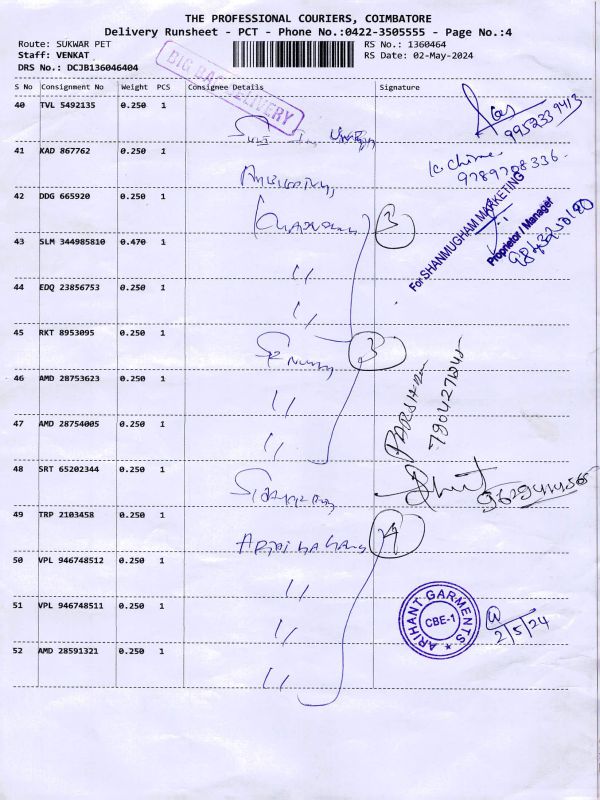 THE PROFESSIONAL COURIERS, COIMBATORE
Delivery Runsheet - PCT - Phone No.:0422-3505555 - Page No.:4
Route: SUKWAR PET
RS No.: 1360464
Staff: VENKAT
RS Date: 02-May-2024
DRS No.: DCJB136046404
BIG BAG DELIVERY
S No Consignment No Weight PCS Consignee Details Signature
40 TVL 5492135 0.250 1
9952339413
41 KAD 867762 0.250 1
9789708336
42 DDG 665920 0.250 1
3
For SHANMUGHAM MARKETING
Proprietor / Manager
43 SLM 344985810 0.470 1
"
44 EDQ 23856753 0.250 1
"
45 RKT 8953095 0.250 1
3
46 AMD 28753623 0.250 1
"
47 AMD 28754005 0.250 1
"
48 SRT 65202344 0.250 1
49 TRP 2103458 0.250 1
4
50 VPL 946748512 0.250 1
"
51 VPL 946748511 0.250 1
"
ARIHANT GARMENTS
CBE-1
2/5/24
52 AMD 28591321 0.250 1
"